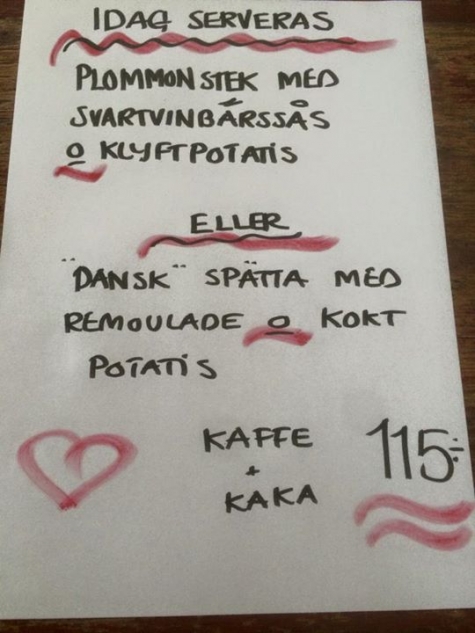 IDAG SERVERAS
PLOMMONSTEK MED
SVARTVINBÄRSSÅS
O KLYFTPOTATIS
ELLER
"DANSK" SPÄTTA MED
REMOULADE O KOKT
POTATIS
KAFFE
+
KAKA
115:-